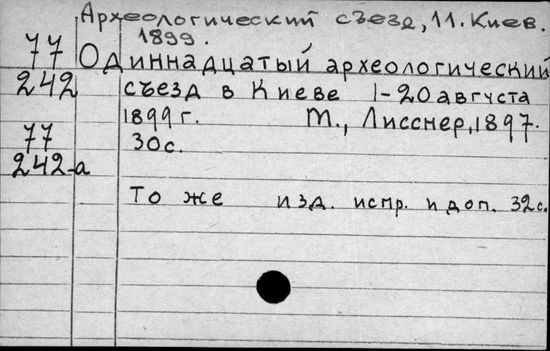 Археологический съезд, 11. Киев.
1899.
77 Одиннадцатый археологический
242 съезд в Киеве 1-20 августа
1899 г. М., Лисснер, 1897.
77 30 с.
242-а
То же изд. испр. и доп. 32 с.